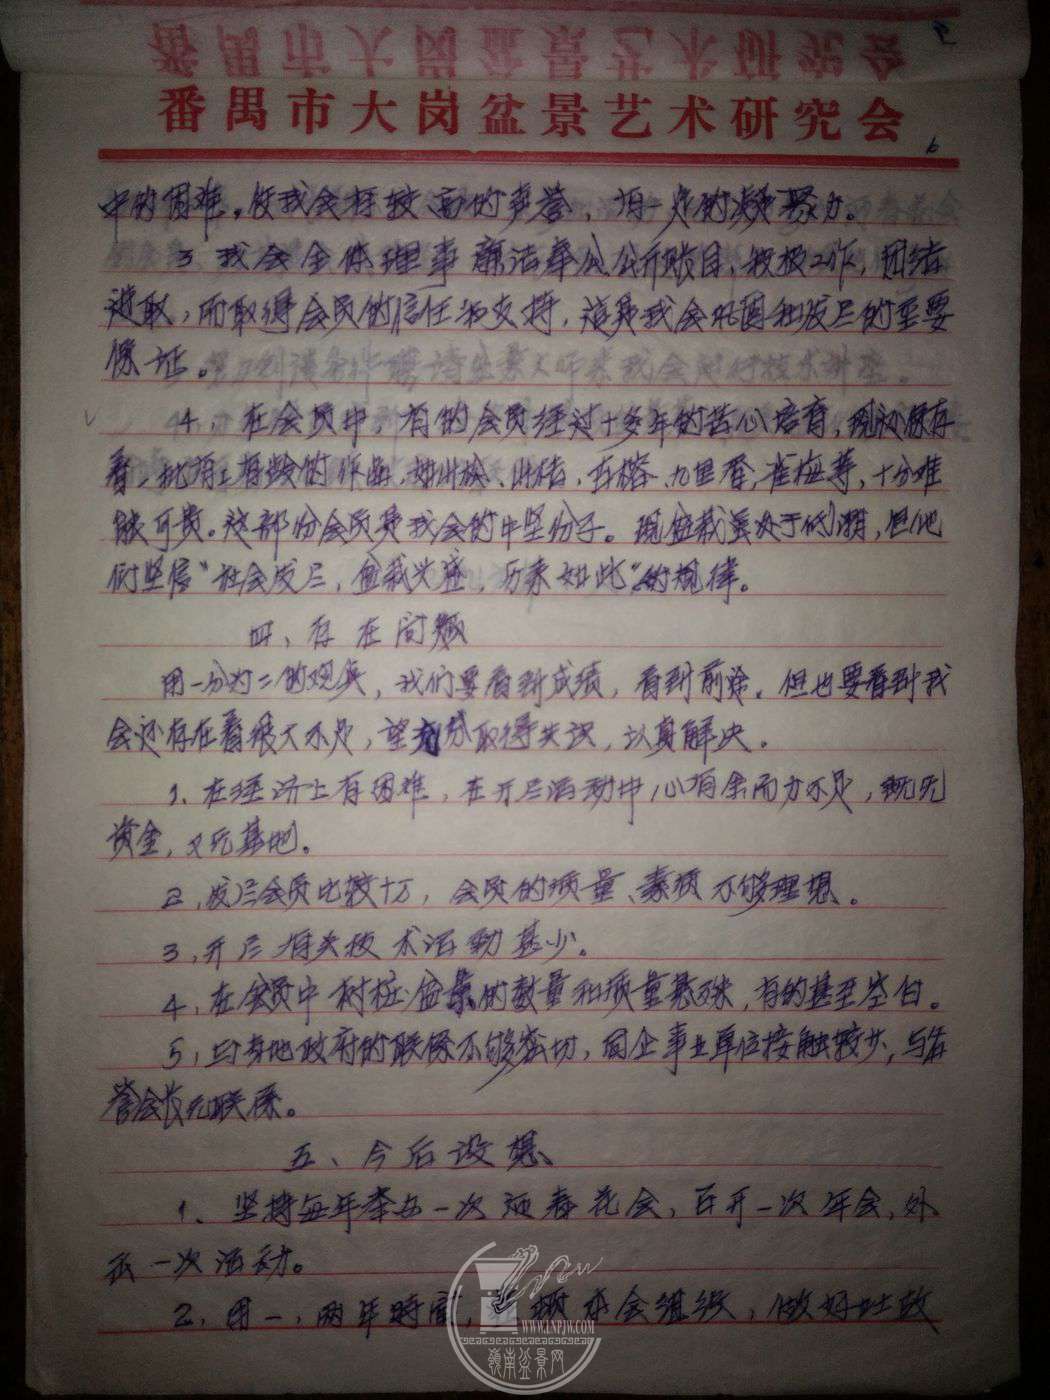 番禺市大岗盆景艺术研究会
6
中的困难。使我会有较高的声誉，有一定的凝聚力。
3 我会全体理事廉洁奉公公开账目，积极工作，团结
进取，而取得会员的信任和支持，这是我会巩固和发展的重要
保证。
4、在会员中，有的会员经过十多年的苦心培育，现还保存
着一批有上档的作品，如山松、山桔、石榕、九里香、雀梅等，十分难
能可贵。这部份会员是我会的中坚份子。现盆栽虽处于低潮，但他
们坚信"社会发展，盆栽兴盛，历来如此"的规律。
四、存在问题
用一分为二的观点，我们要看到成绩，看到前途。但也要看到我
会还存在着很大不足，望充分取得共识，认真解决。
1、在经济上有困难，在开展活动中，心有余而力不足，既无
资金，又无基地。
2、发展会员比较 ，会员的质量、素质不够理想。
3、开展有关技术活动甚少。
4、在会员中树桩盆景的数量和质量悬殊，有的甚至空白。
5、与当地政府的联系不够密切，同企事业单位接触较少，与名
誉会长无联系。
五、今后设想
1、坚持每年举办一次迎春花会，召开一次年会，外
出一次活动。
2、用一、两年时间， 本会组织，做好吐故
WWW.LNPJW.COM
嶺南盆景网